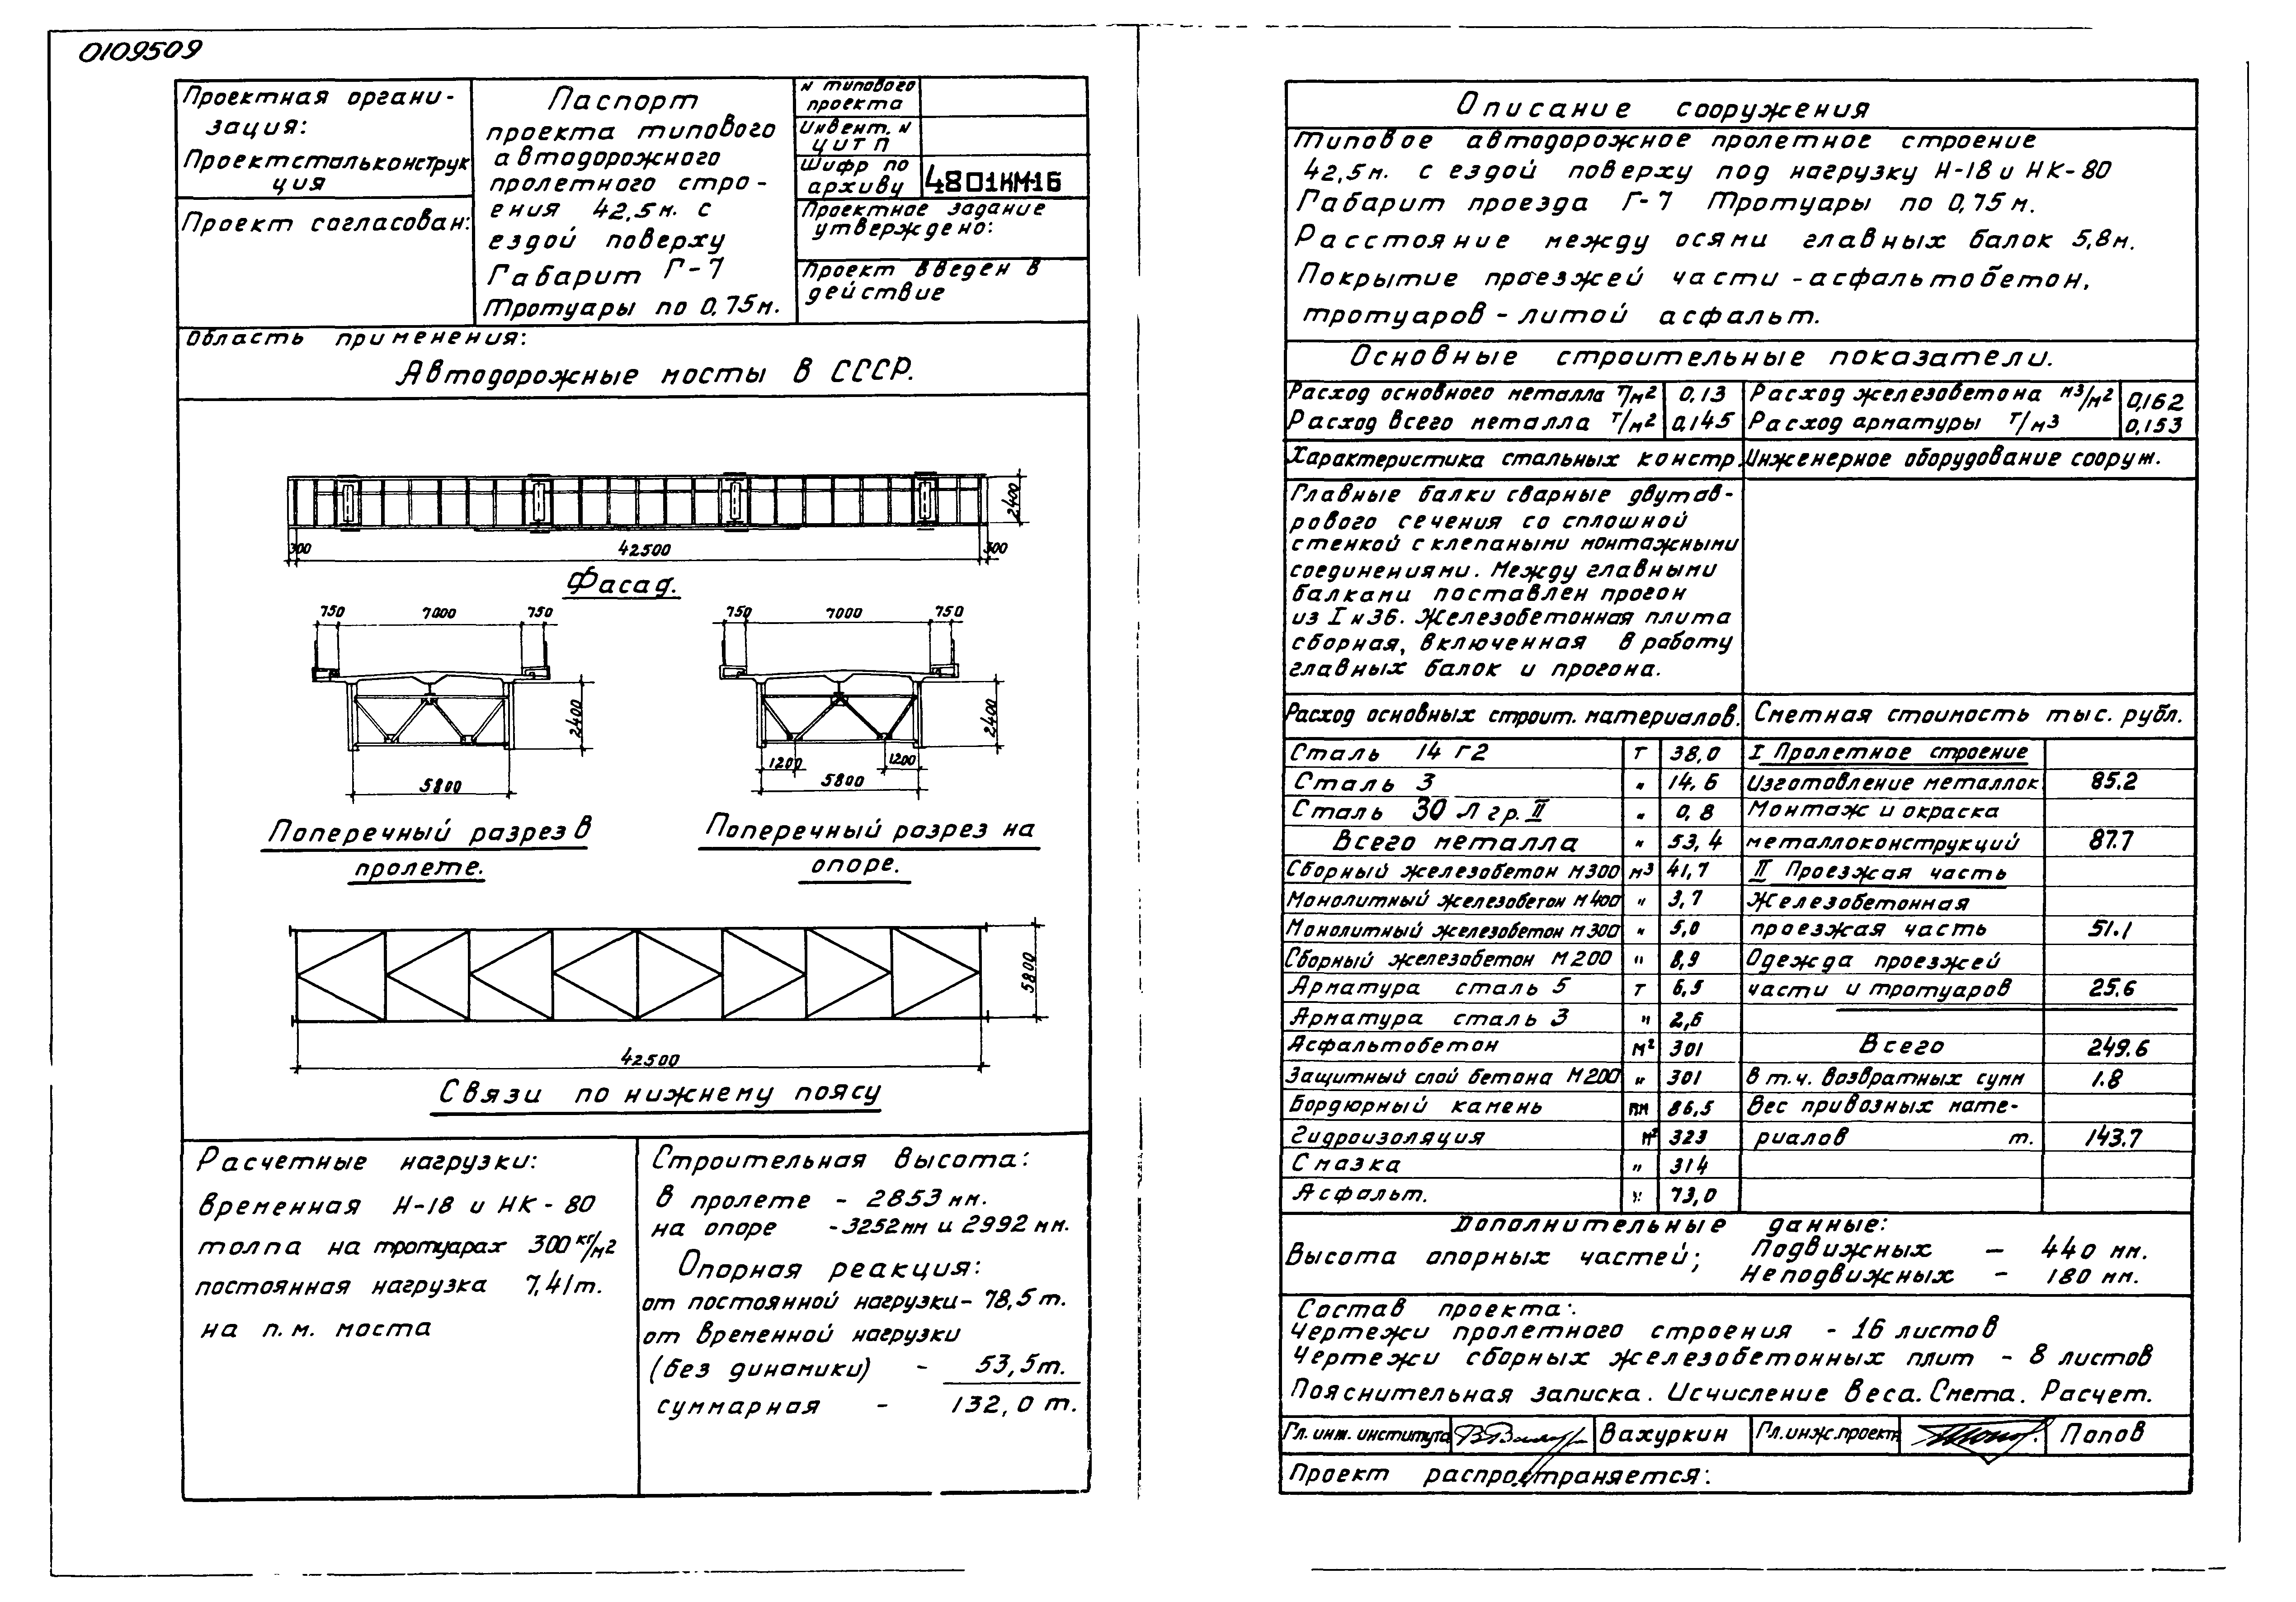 0109509
Проектная органи-
зация:
Проектстальконструк
ция
Проект согласован:
Паспорт
проекта типового
автодорожного
пролетного стро-
ения 42,5м. с
ездой поверху
Габарит Г-7
Тротуары по 0,75м.
N типового
проекта
Инвент. N
ЦИТП
Шифр по
архиву
4801КМ-1Б
Проектное задание
утверждено:
Проект введен в
действие
Область применения:
Автодорожные мосты в СССР.
2400
300 42500 300
Фасад.
750 7000 750
2400
5800
Поперечный разрез в
пролете.
750 7000 750
2400
1200 1200
5800
Поперечный разрез на
опоре.
5800
42500
Связи по нижнему поясу
Расчетные нагрузки:
временная Н-18 и НК-80
толпа на тротуарах 300 кг/м2
постоянная нагрузка 7,41т.
на п.м. моста
Строительная высота:
в пролете - 2853 мм.
на опоре - 3252мм и 2992 мм.
Опорная реакция:
от постоянной нагрузки - 78,5 т.
от временной нагрузки
(без динамики) - 53,5т.
суммарная - 132,0 т.
Описание сооружения
Типовое автодорожное пролетное строение
42,5м. с ездой поверху под нагрузку Н-18 и НК-80
Габарит проезда Г-7 Тротуары по 0,75 м.
Расстояние между осями главных балок 5,8м.
Покрытие проезжей части - асфальтобетон,
тротуаров - литой асфальт.
Основные строительные показатели.
Расход основного металла т/м2 0,13 Расход железобетона м3/м2 0,162
Расход всего металла т/м2 0,145 Расход арматуры т/м3 0,153
Характеристика стальных констр. Инженерное оборудование сооруж.
Главные балки сварные двутав-
рового сечения со сплошной
стенкой с клепаными монтажными
соединениями. Между главными
балками поставлен прогон
из I N36. Железобетонная плита
сборная, включенная в работу
главных балок и прогона.
Расход основных строит. материалов. Сметная стоимость тыс. рубл.
Сталь 14 Г2 т 38,0 I Пролетное строение
Сталь 3 " 14,6 Изготовление металлок. 85.2
Сталь 30 Л гр. II " 0,8 Монтаж и окраска
Всего металла " 53,4 металлоконструкций 87.7
Сборный железобетон М300 м3 41,7 II Проезжая часть
Монолитный железобетон М400 " 3,7 Железобетонная
Монолитный железобетон М300 " 5,0 проезжая часть 51.1
Сборный железобетон М200 " 8,9 Одежда проезжей
Арматура сталь 5 т 6,5 части и тротуаров 25.6
Арматура сталь 3 " 2,6
Асфальтобетон м2 301 Всего 249.6
Защитный слой бетона М200 " 301 в т.ч. возвратных сумм 1.8
Бордюрный камень пм 86,5 Вес привозных мате-
Гидроизоляция м2 323 риалов т. 143.7
Смазка " 314
Асфальт. " 73,0
Дополнительные данные:
Высота опорных частей; Подвижных - 440 мм.
Неподвижных - 180 мм.
Состав проекта:
Чертежи пролетного строения - 16 листов
Чертежи сборных железобетонных плит - 8 листов
Пояснительная записка. Исчисление веса. Смета. Расчет.
Гл. инж. института Вахуркин Гл. инж. проект. Попов
Проект распространяется: